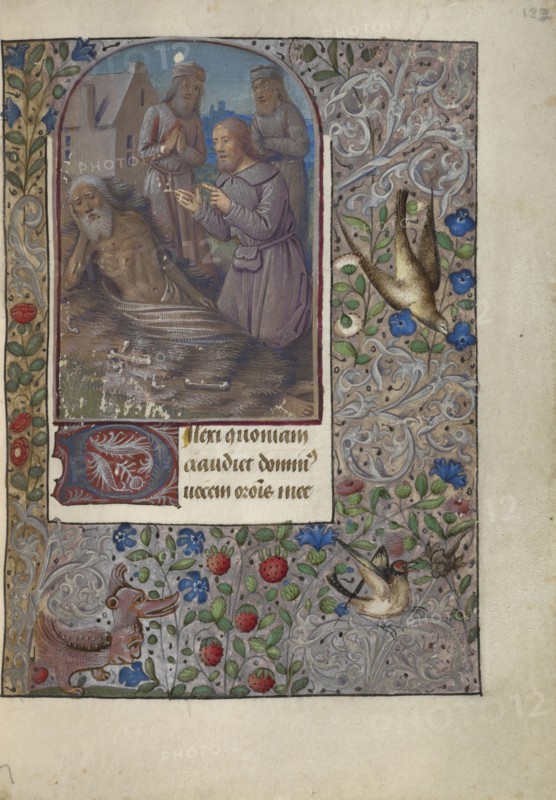 127
Dilexi quoniam
exaudiet domin9
uocem orõis mee
PHOTO12
PHOTO12
PHOTO12
PHOTO12
PHOTO12